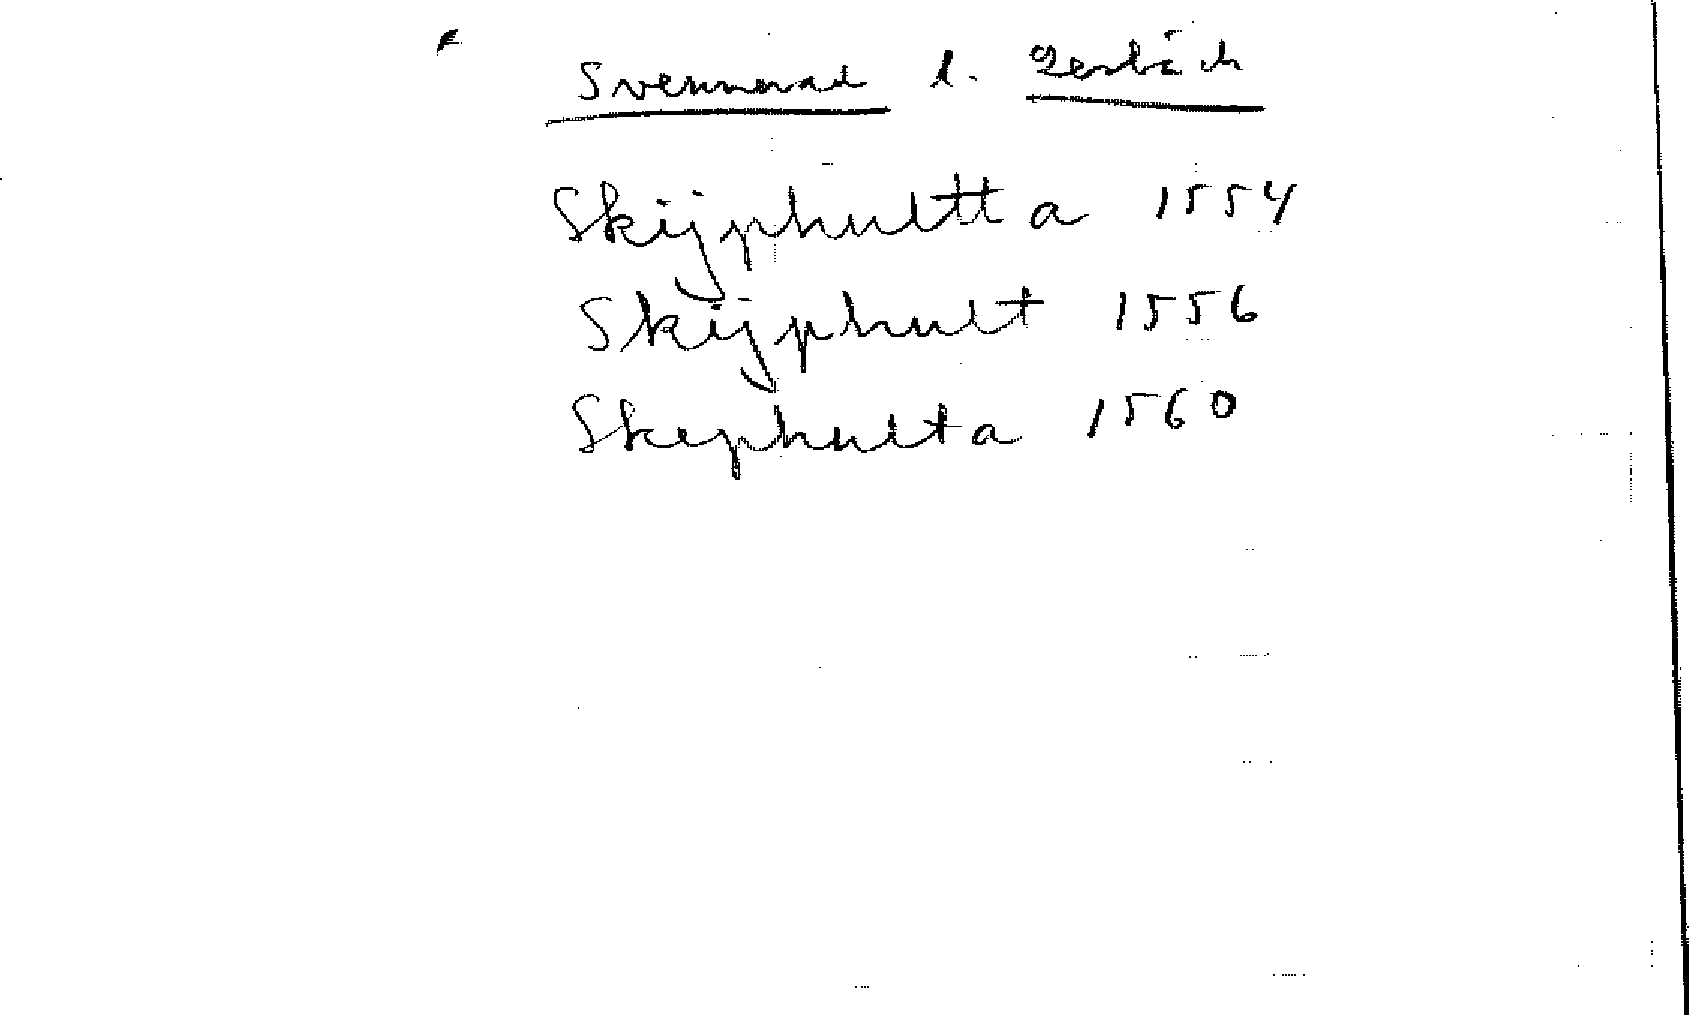 Svennerad l.
Skijphultta 1554
Skijphult 1556
Skephulta 1560